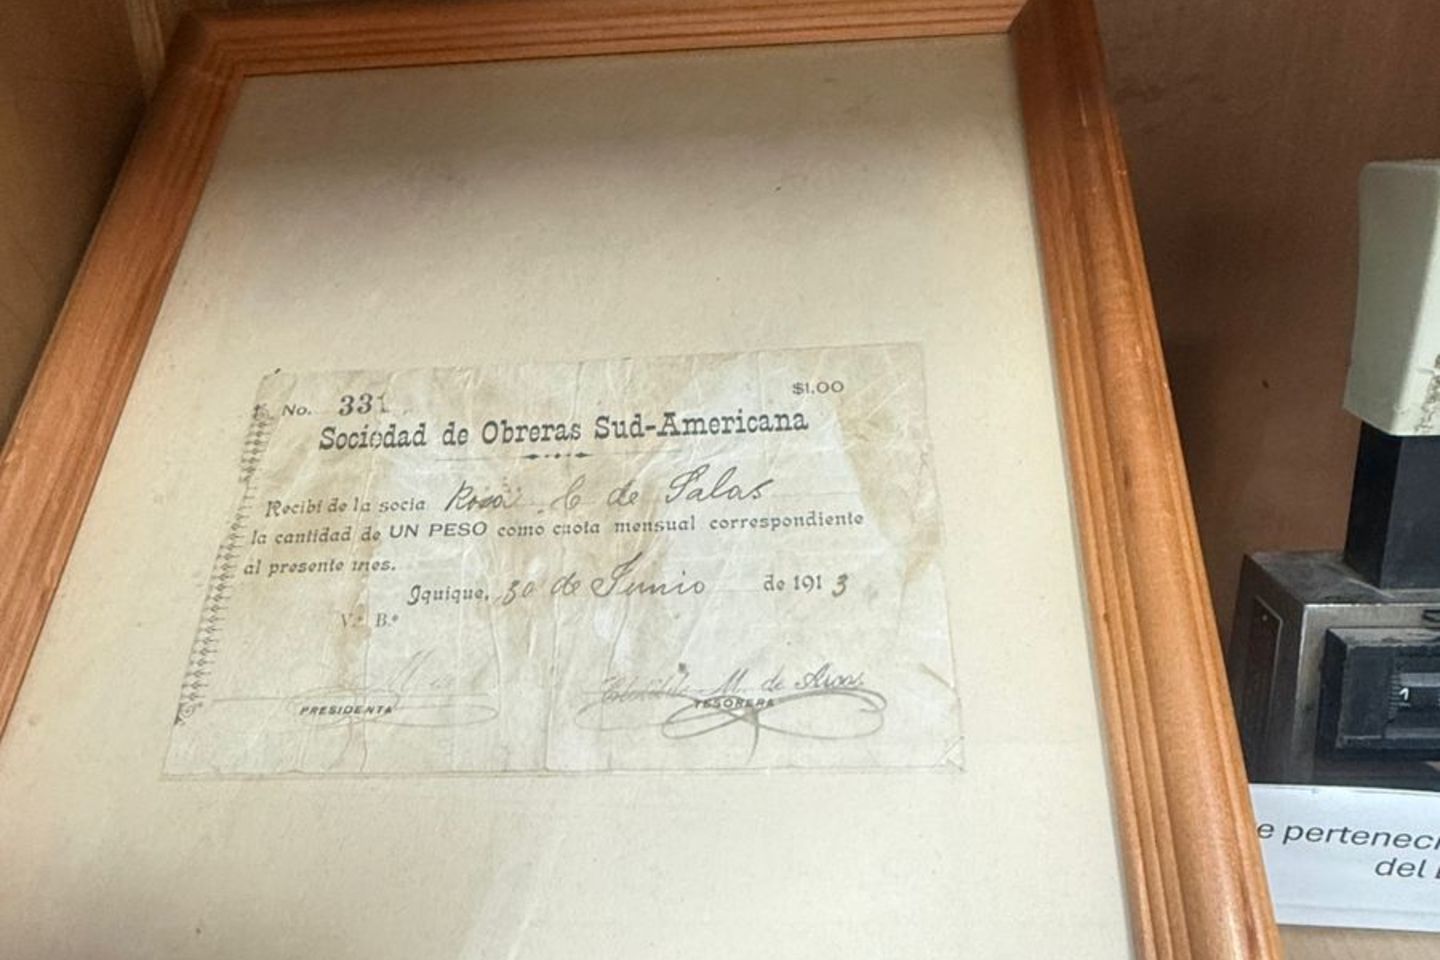 No. 331
$1.00
Sociedad de Obreras Sud-Americana
Recibí de la socia Rosa C de Salas
la cantidad de UN PESO como cuota mensual correspondiente
al presente mes.
Iquique, 30 de Junio de 1913
V.º B.º
M. de
PRESIDENTA
TESORERA
1
e pertenec
del